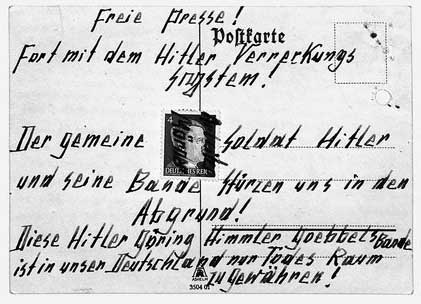 Freie Presse!
Postkarte
Fort mit dem Hitler Verreckungs
system.
4
Der gemeine Soldat Hitler
und seine Bande stürzen uns in den
Abgrund!
Diese Hitler Göring Himmler Goebbels Bande
ist in unser Deutschland nur Todes Raum
zu gewähren!
3504 01